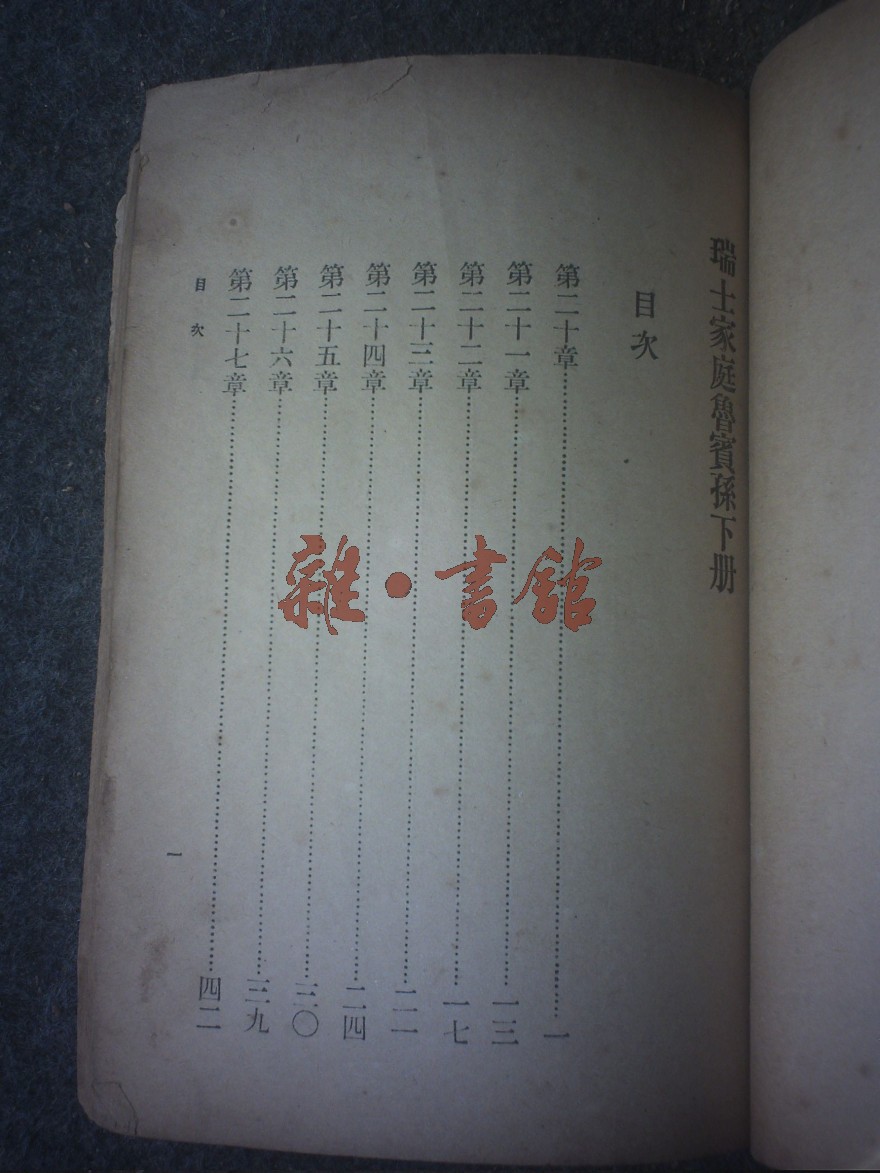 瑞士家庭魯賓孫下册
目次
第二十章……一
第二十一章……一三
第二十二章……一七
第二十三章……二一
第二十四章……二四
第二十五章……三〇
第二十六章……三九
第二十七章……四二
目次
一
雜·書館